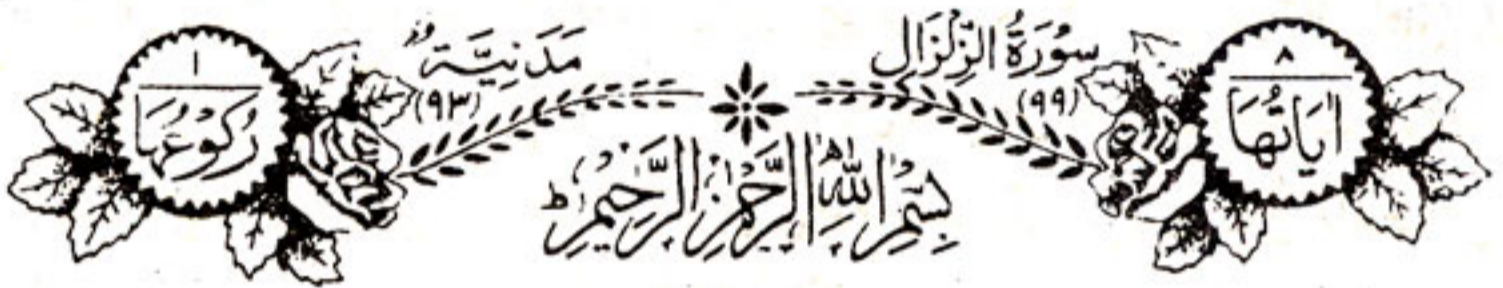 ٨
اٰيَاتُهَا
سُوْرَةُ الزِّلْزَالِ
(٩٩)
مَدَنِيَّةٌ
(٩٣)
١
رُكُوْعُهَا
بِسْمِ اللّٰهِ الرَّحْمٰنِ الرَّحِيْمِ ط